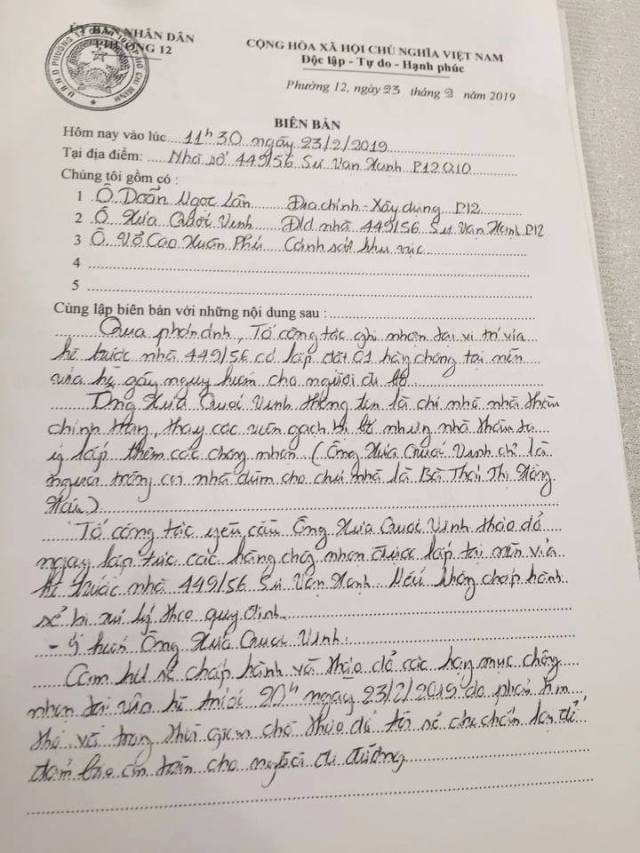 ỦY BAN NHÂN DÂN
PHƯỜNG 12
CỘNG HÒA XÃ HỘI CHỦ NGHĨA VIỆT NAM
Độc lập - Tự do - Hạnh phúc
Phường 12, ngày 23 tháng 2 năm 2019
BIÊN BẢN
Hôm nay vào lúc 11h30 ngày 23/2/2019
Tại địa điểm: Nhà số 449/56 Sư Vạn Hạnh P12Q10
Chúng tôi gồm có :
1 Ô. Doãn Ngọc Lân Địa chính - Xây dựng P12
2 Ô. Hứa Quới Vinh Đ/d nhà 449/56 Sư Vạn Hạnh P12
3 Ô. Võ Cao Xuân Phú Cảnh sát khu vực
4
5
Cùng lập biên bản với những nội dung sau :
Qua phản ánh, Tổ công tác ghi nhận tại vị trí vỉa
hè trước nhà 449/56 có lắp đặt 01 hàng chông tại mền
vỉa hè gây nguy hiểm cho người đi bộ
Ông Hứa Quới Vinh thông tin là chỉ nhờ nhà thầu
chỉnh trang, thay các viên gạch bị bể nhưng nhà thầu tự
ý lắp thêm các chông nhọn (Ông Hứa Quới Vinh chỉ là
người trông coi nhà dùm cho chủ nhà là Bà Thái Thị Hồng
Tổ công tác yêu cầu Ông Hứa Quới Vinh tháo dỡ
ngay lập tức các hàng chông nhọn được lắp tại mền vỉa
hè trước nhà 449/56 Sư Vạn Hạnh. Nếu không chấp hành
sẽ bị xử lý theo quy định.
- Ý kiến Ông Hứa Quới Vinh:
Cam kết sẽ chấp hành và tháo dỡ các hạng mục chông
nhọn tại vỉa hè trước 20h ngày 23/2/2019 do phải tìm
thợ và trong thời gian chờ tháo dỡ tôi sẽ che chắn lại để
đảm bảo an toàn cho người đi đường